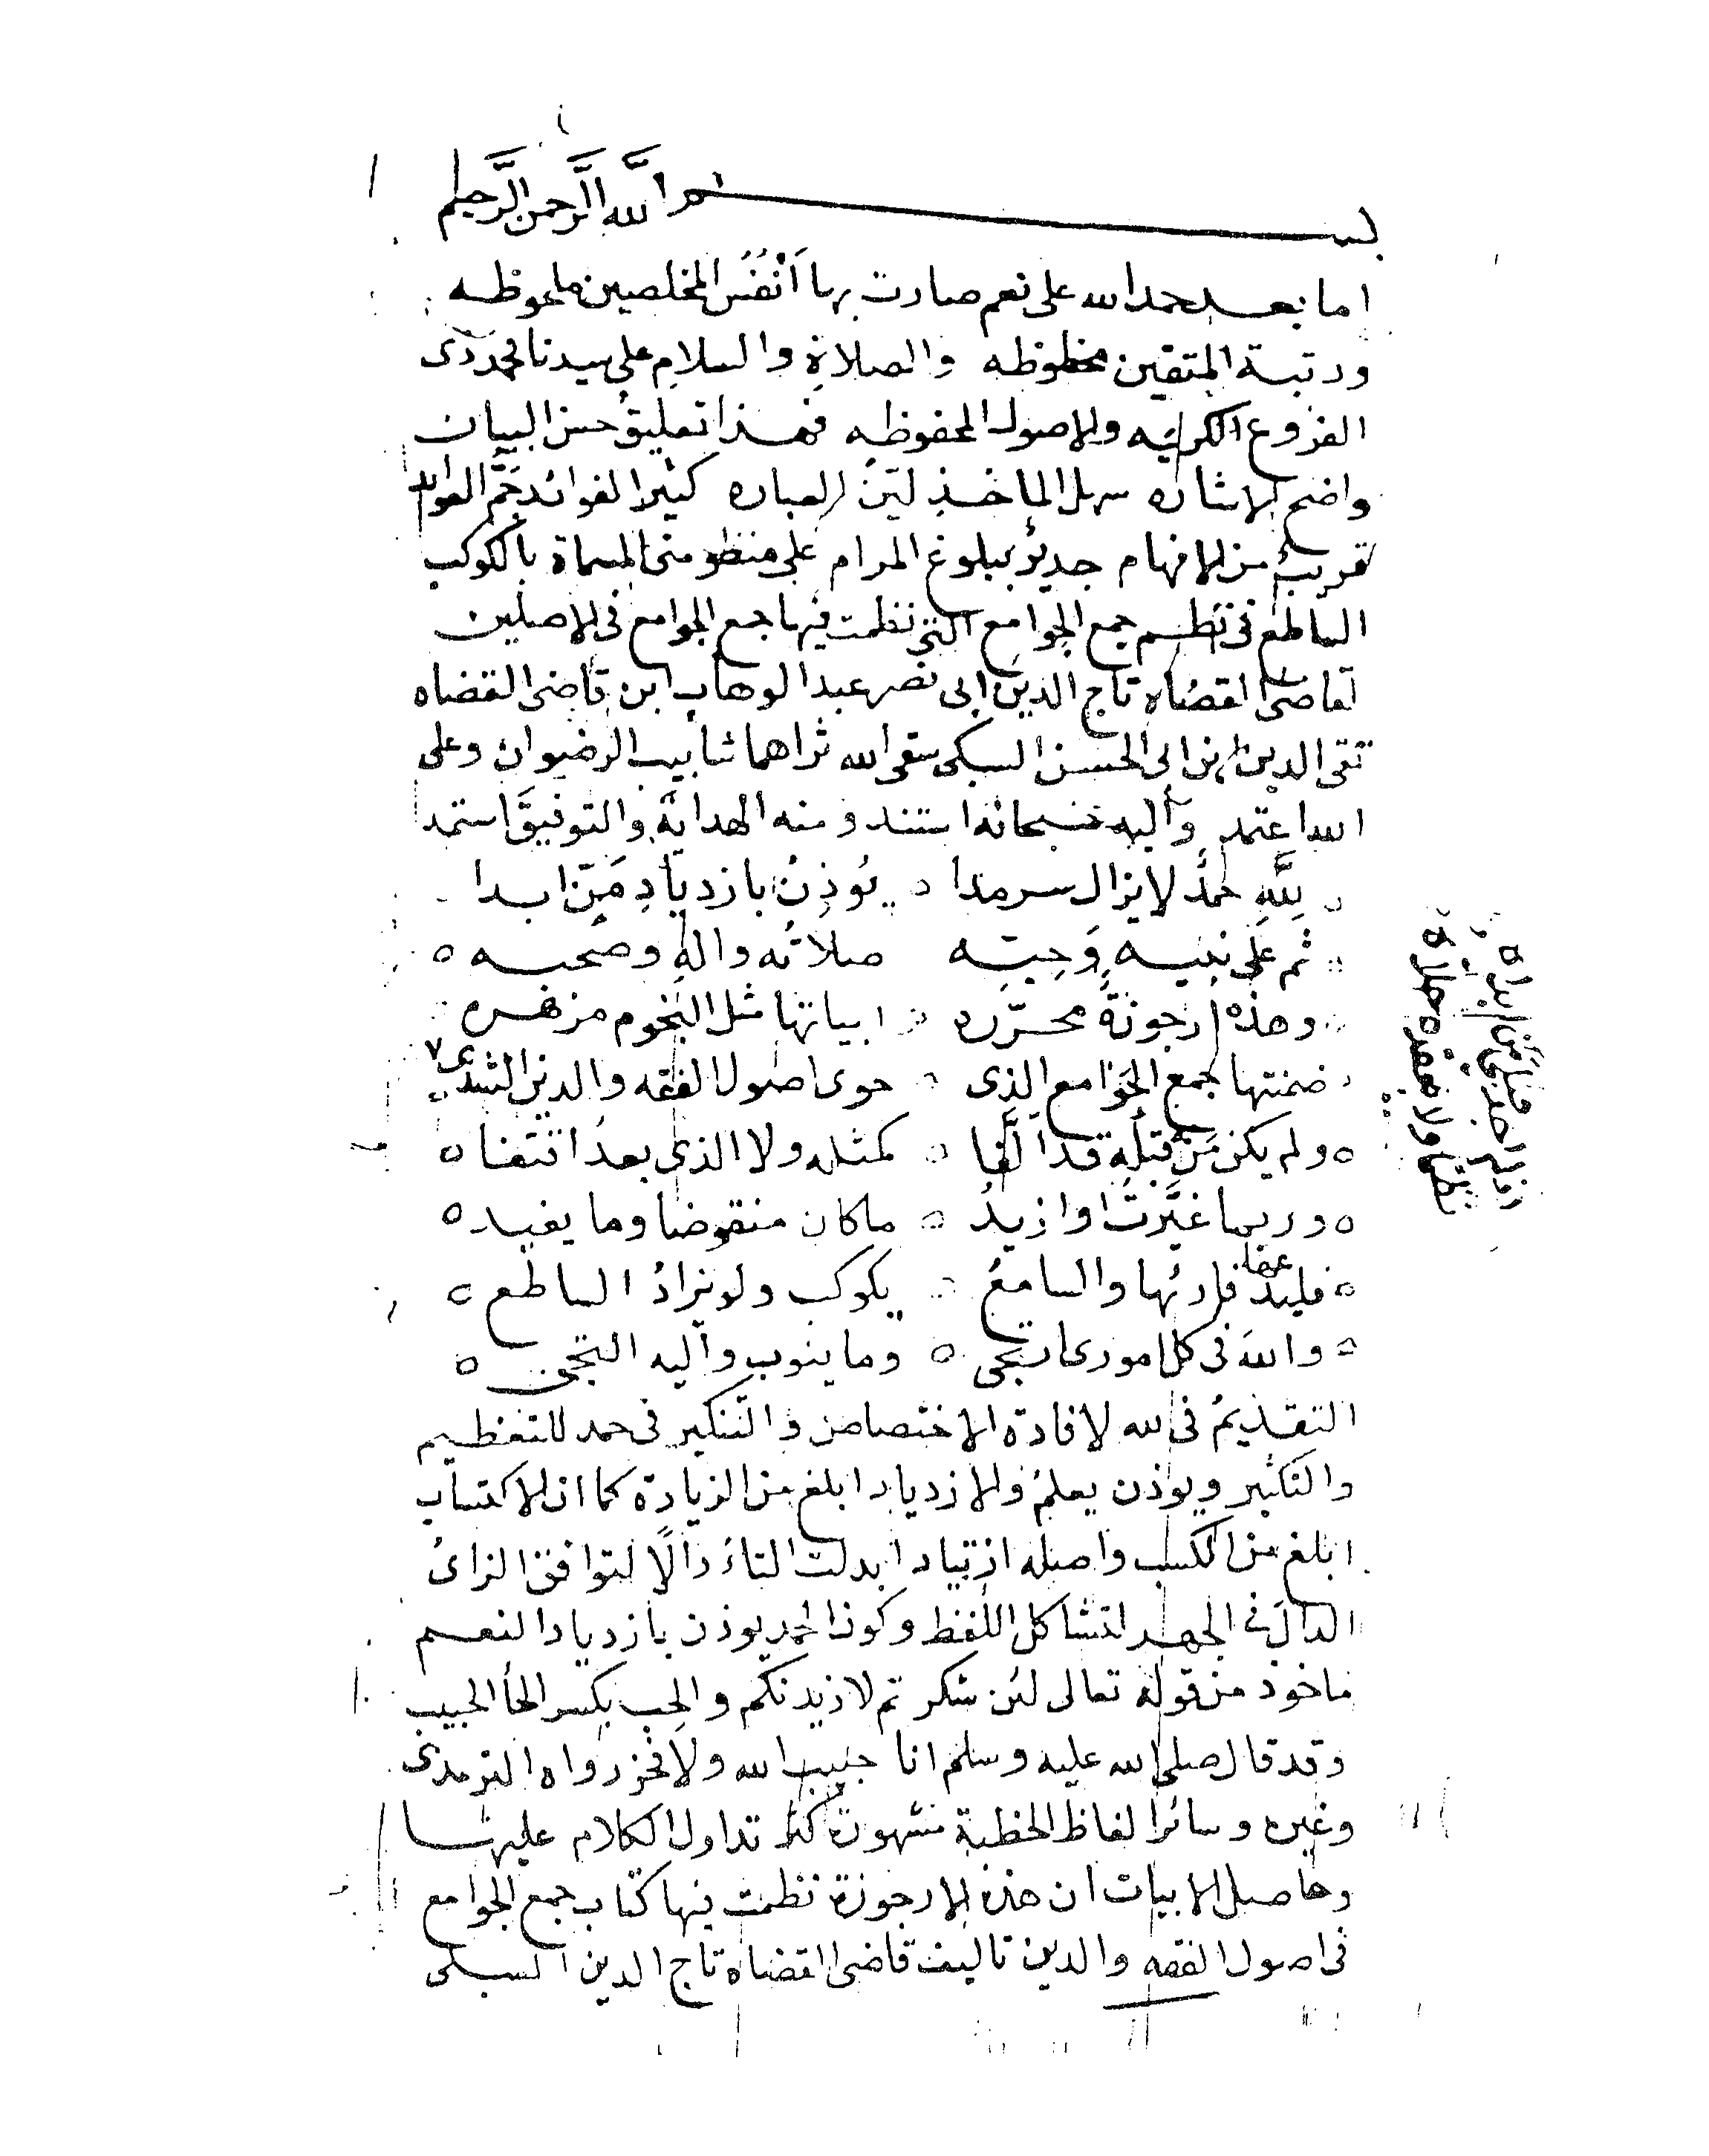 بسم الله الرحمن الرحيم
اما بعد حمد الله على نعم صارت بها أنفُسُ المخلصين ملحوظه
ورتبة المتقين محظوظه والصلاةِ والسلامِ على سيدنا محمد ذى
الفروع الكريمه والاصول المحفوظه فهذا تعليقٌ حسن البيان
واضح الاشاره سهل الماخذِ ليّنُ العباره كثير الفوائد جَمُّ العوائد
قريبٌ من الافهام جديرٌ ببلوغ المرام على منظومتى المسماة بالكوكب
الساطع فى نظم جمع الجوامع التى نظمت فيها جمع الجوامع فى الاصلين
لقاضى القضاه تاج الدين ابى نصر عبد الوهاب ابن قاضى القضاه
تقى الدين ابى الحسن السبكى سقى الله ثراهما شآبيب الرضوان وعلى
الله اعتمد واليه سبحانه استند ومنه الهداية والتوفيق استمد
لِلَّهِ حمدٌ لا يزال سرمدا يُوذِنُ بازديادِ مَنٍّ ابدا
ثم على نبيه وَحِبّه صلاتُه وآلهِ وصحبه
وهذه ارجوزةٌ محرّره ابياتها مثل النجوم مزهره
ضمنتها جمع الجوامع الذى حوى اصول الفقه والدين الشذى
ولم يكن مَن قبلَه قد ألّفا كمثله ولا الذى بعدُ اقتفا
وربما غيّرتُ او ازيدُ ماكان منقوضا وما يفيد
فليدعُها قارئها والسامعُ بكوكب ولو يُزادُ الساطع
والله فى كل امورى ارتجى وما ينوب واليه التجى
التقديمُ فى لله لافادة الاختصاص والتنكير فى حمد للتعظيم
والتكثير ويوذن يعلمُ والازدياد ابلغ من الزيادة كما ان الاكتساب
ابلغ من الكسب واصله ازتياد ابدلت التاءُ دالًا لتوافق الزاىُ
الدالَ فى الجهر لتشاكل اللفظ وكون الحمد يوذن بازدياد النعم
ماخوذ من قوله تعالى لئن شكرتم لازيدنكم والحِب بكسر الحأ الحبيب
وقد قال صلى الله عليه وسلم انا حبيب الله ولا فخر رواه الترمذى
وغيره وسائر الفاظ الخطبة مشهورة كثر تداول الكلام عليها
وحاصل الابيات ان هذه الارجوزة نظمت فيها كتاب جمع الجوامع
فى اصول الفقه والدين تاليف قاضى القضاه تاج الدين السبكى